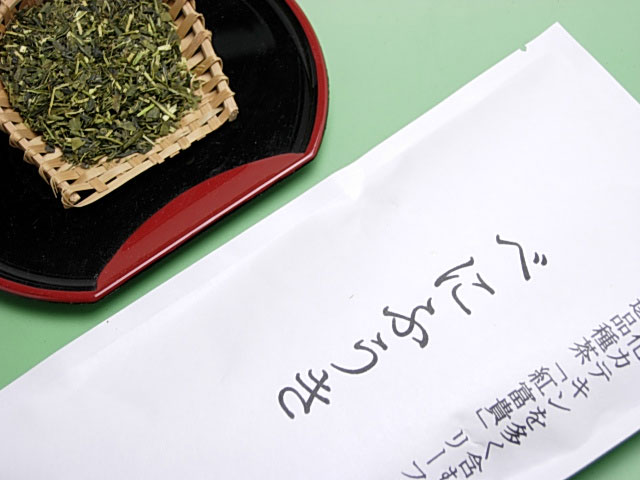 化カテキンを多く含
品種茶「紅富貴」リーフ
べにふうき